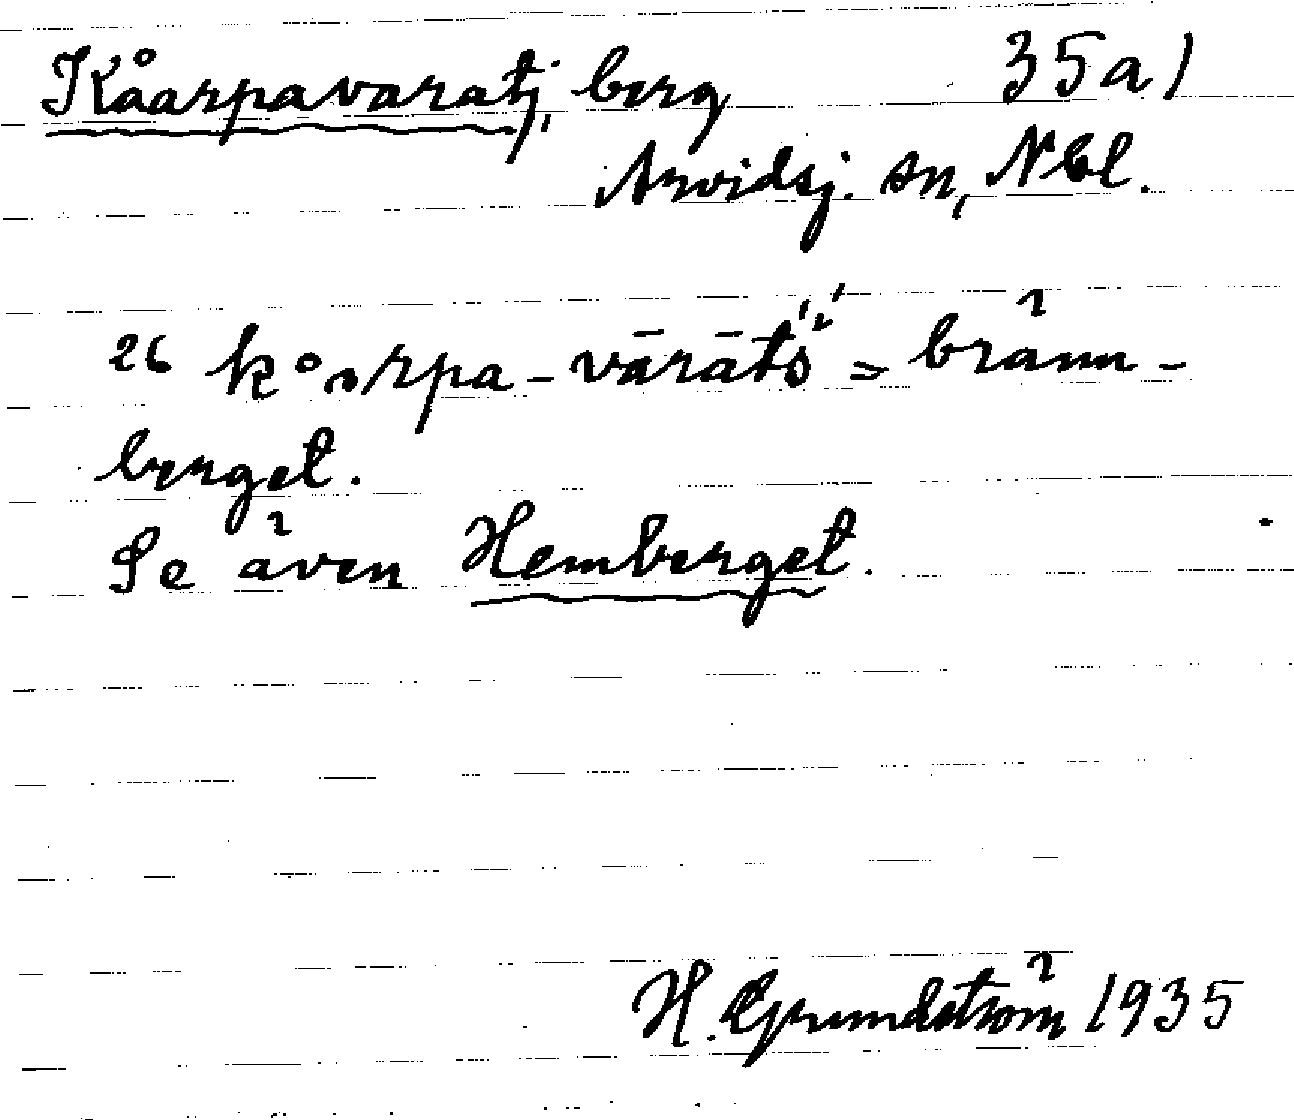 Kåarpavaratj, berg 35a1
Arvidsj. sn, Nbl.
26 = bränn-
berget.
Se även Hemberget.
H. Grundström 1935